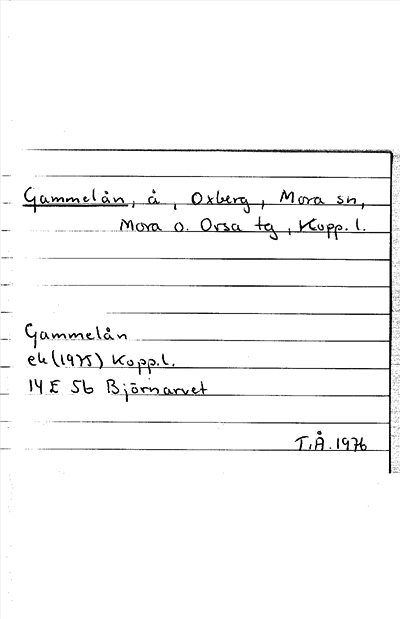 Gammelån, å, Oxberg, Mora sn,
Mora o. Orsa tg, Kopp. l.
Gammelån
ek (1975) Kopp.l.
14 E 5b Björnarvet
T.Å. 1976